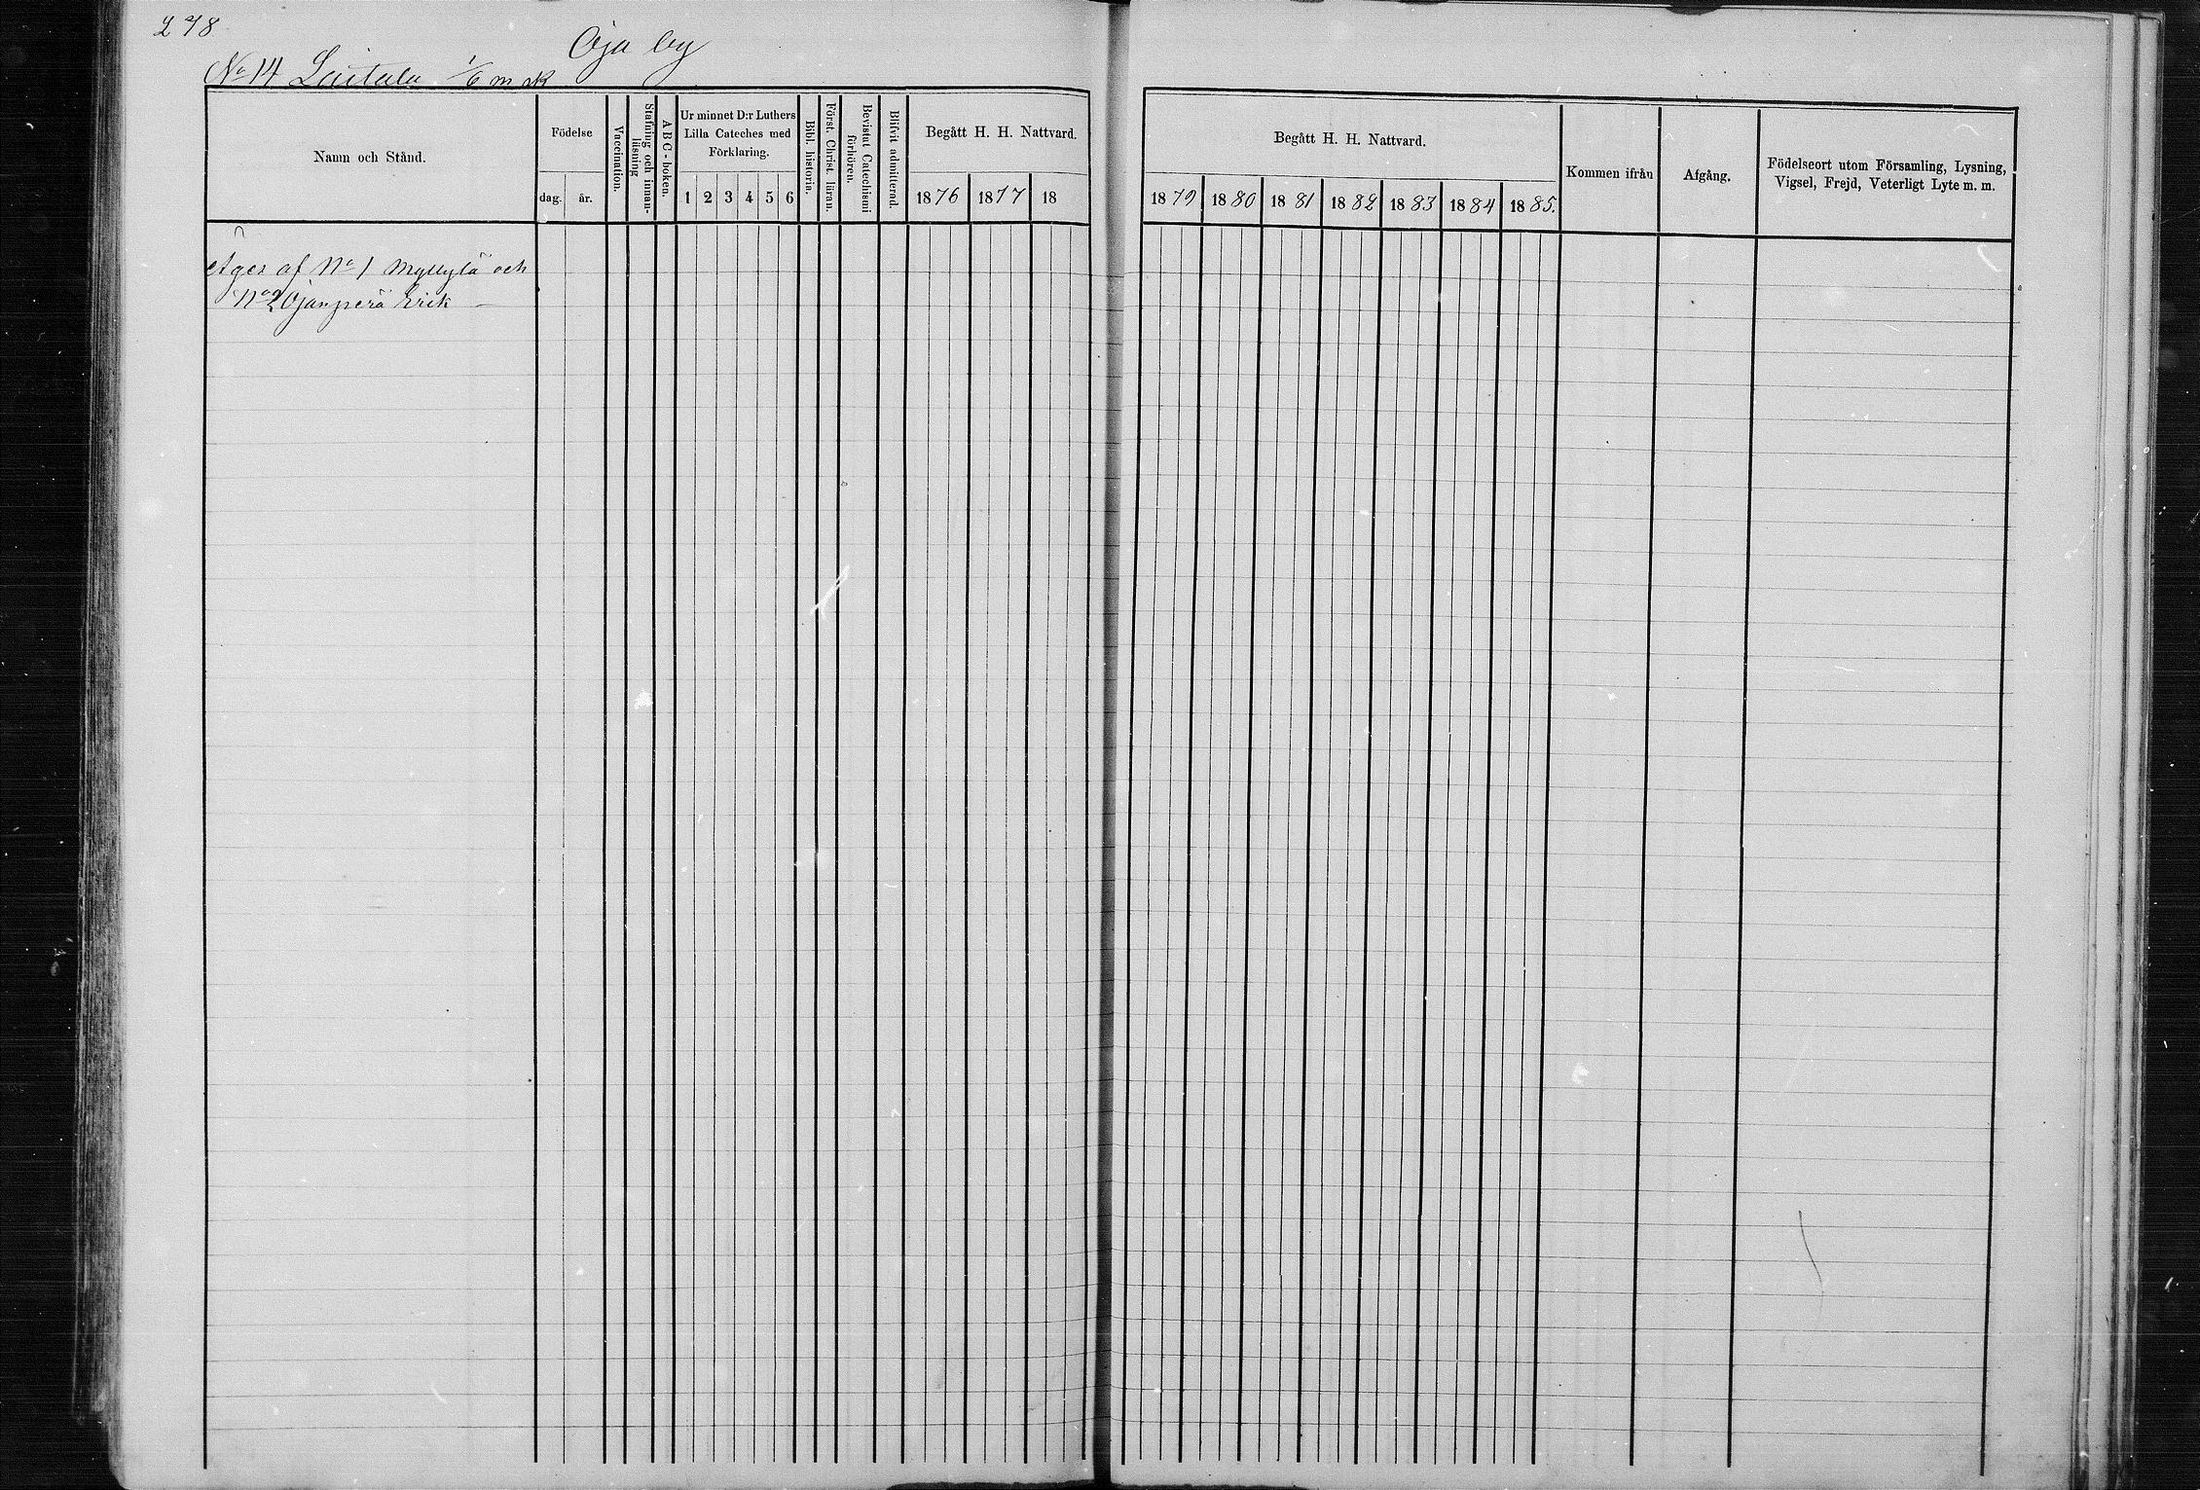 278
Oja by
No 14 Laitala 1/6 mtk
Namn och Stånd.
Födelse
dag. år.
Vaccination.
Stafning och innan-
läsning
A B C - boken.
Ur minnet D:r Luthers
Lilla Cateches med
Förklaring.
1 2 3 4 5 6
Bibl. historia.
Först. Christ. läran.
Bevistat Catechismi
förhören.
Blifvit admitterad.
Begått H. H. Nattvard.
1876 1877 18
Begått H. H. Nattvard.
1879 1880 1881 1882 1883 1884 1885.
Kommen ifrån
Afgång.
Födelseort utom Församling, Lysning,
Vigsel, Frejd, Veterligt Lyte m. m.
Äges af No 1 Myllylä och
No 2 Ojanperä Erik —